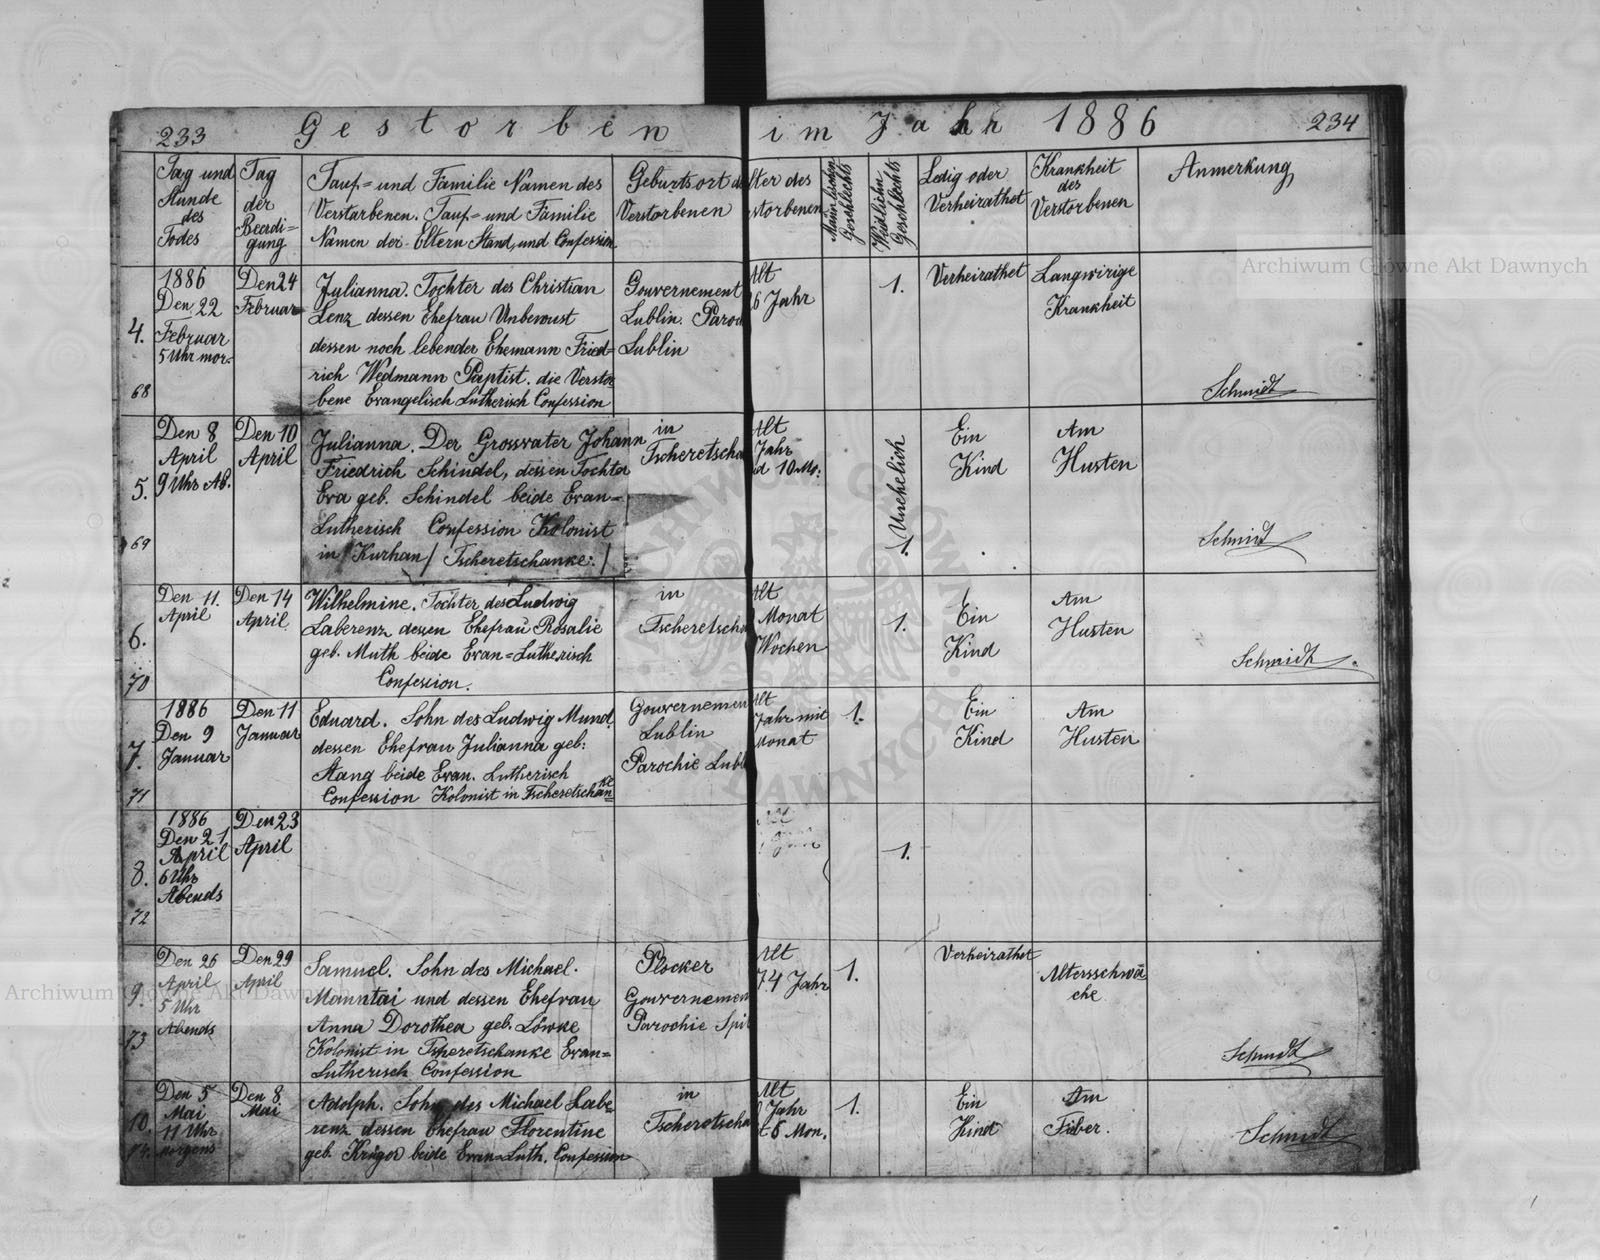 233 Gestorben im Jahr 1886 234
Tag und
Stunde
des
Todes
Tag
der
Beerdi=
gung
Tauf= und Familie Namen des
Verstorbenen. Tauf= und Familie
Namen der Eltern Stand, und Confession
Geburtsort de
Verstorbenen
lter des
storbenen
Männlichen
Geschlechts
Weiblichn
Geschlechts
Ledig oder
Verheirathet
Krankheit
des
Verstorbenen
Anmerkung
4.
68
1886
Den 22
Februar
5 Uhr mor.
Den 24
Februar
Julianna. Tochter des Christian
Lenz dessen Ehefrau Unbewust
dessen noch lebender Ehemann Fried=
rich Wedmann Paptist. die Verstor
bene Evangelisch Lutherisch Confession
Gouvernement
Lublin. Paroc
Lublin
Alt
6 Jahr
1.
Verheirathet
Langwirige
Krankheit
Schmidt
5.
69
Den 8
April
9 Uhr Ab.
Den 10
April
Julianna. Der Grossvater Johann
Friedrich Schindel, dessen Tochter
Eva geb. Schindel beide Evan=
Lutherisch Confession Kolonist
in Kurhan / Tscheretschanke: /
in
Tscheretscha
Alt
Jahr
d 10 Mo:
Unehelich
1.
Ein
Kind
Am
Husten
Schmidt
6.
70
Den 11.
April
Den 14
April
Wilhelmine. Tochter des Ludwig
Laberenz dessen Ehefrau Rosalie
geb. Muth beide Evan=Lutherisch
Confession.
in
Tscheretscha
Alt
Monat
Wochen
1.
Ein
Kind
Am
Husten
Schmidt
7.
71
1886
Den 9
Januar
Den 11
Januar
Eduard. Sohn des Ludwig Mund.
dessen Ehefrau Julianna geb:
Stang beide Evan. Lutherisch
Confession Kolonist in Tscheretschanke
Gouvernemen
Lublin
Parochie Lubl
Alt
Jahr mit
Monat
1.
Ein
Kind
Am
Husten
8.
72
1886
Den 21
April
6 Uhr
Abends
Den 23
April
1.
9.
73
Den 26
April
5 Uhr
Abends
Den 29
April
Samuel. Sohn des Michael.
Manntai und dessen Ehefrau
Anna Dorothea geb. Löwke
Kolonist in Tscheretschanke Evan=
Lutherisch Confession
Plocker
Gouvernemen
Parochie Spi
Alt
74 Jahr
1.
Verheirathet
Altersschwä
che
Schmidt
10.
74.
Den 5
Mai
11 Uhr
morgens
Den 8
Mai
Adolph. Sohn des Michael Labe
renz dessen Ehefrau Florentine
geb. Krüger beide Evan=Luth. Confession
in
Tscheretscha
Alt
Jahr
t 6 Mon.
1.
Ein
Kind
Am
Fiber.
Schmidt
Archiwum Główne Akt Dawnych
Archiwum Główne Akt Dawnych